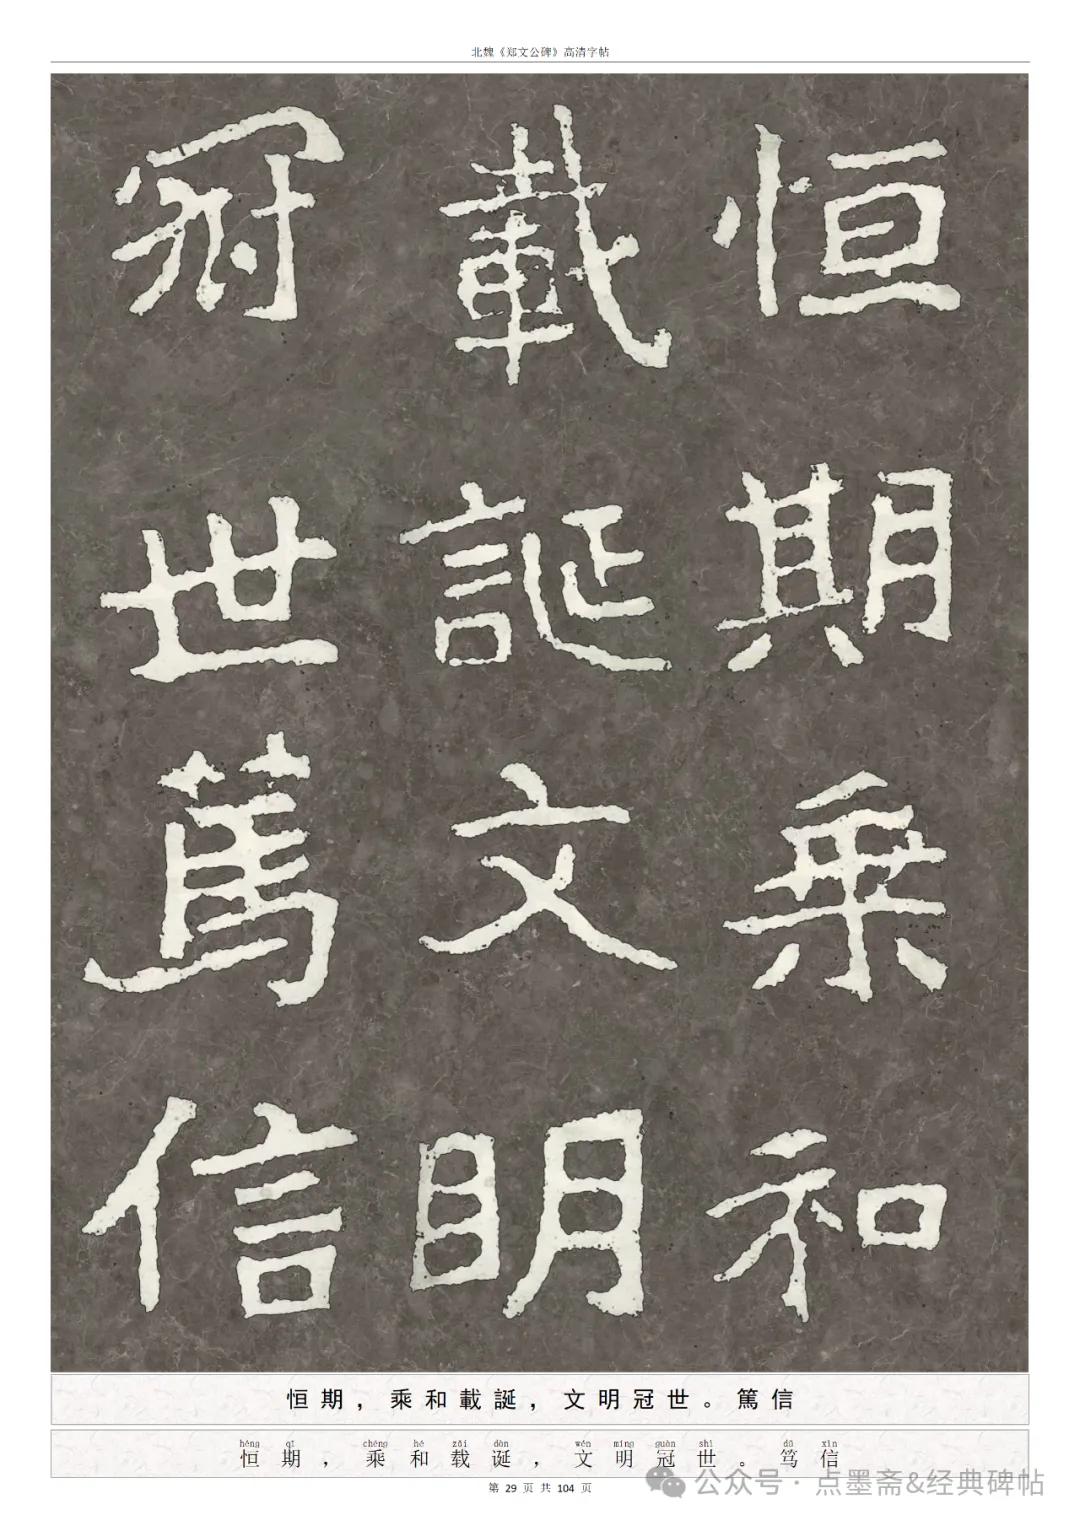 北魏《郑文公碑》高清字帖
恒期乘和
載誕文明
冠世篤信
恒期，乘和載誕，文明冠世。篤信
héng qī chéng hé zǎi dàn wén míng guàn shì dǔ xìn
恒期，乘和载诞，文明冠世。笃信
第 29 页 共 104 页
公众号 · 点墨斋&经典碑帖